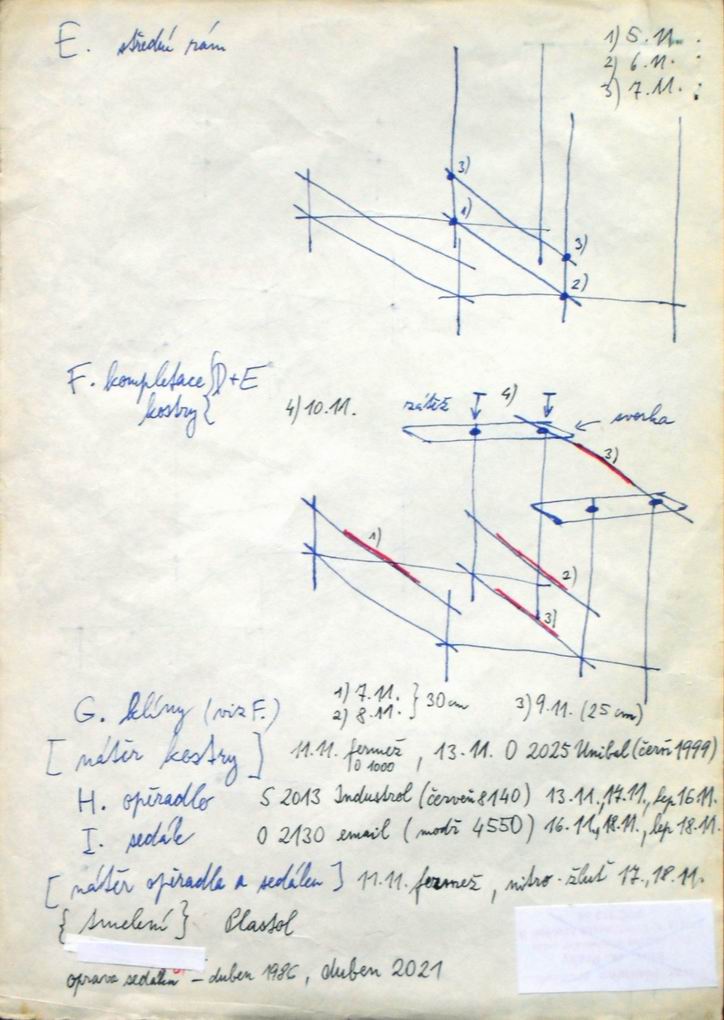 E. střední rám
1) 5.11.
2) 6.11.
3) 7.11.
3)
1)
3)
2)
F. kompletace D+E
kostry
4) 10.11.
zátěž
4)
svorka
3)
1)
2)
3)
G. klíny (viz F.)
1) 7.11.
2) 8.11. } 30 cm
3) 9.11. (25 cm)
[nátěr kostry] 11.11. fermež O 1000, 13.11. O 2025 Unibal (čerň 1999)
H. opěradlo S 2013 Industrol (červeň 8140) 13.11., 17.11., lep 16.11.
I. sedák O 2130 email (modř 4550) 16.11., 18.11., lep 18.11.
[nátěr opěradla a sedáku] 11.11. fermež, nitro-žluť 17., 18.11.
{tmelení} Plastol
oprava sedáku – duben 1986, duben 2021